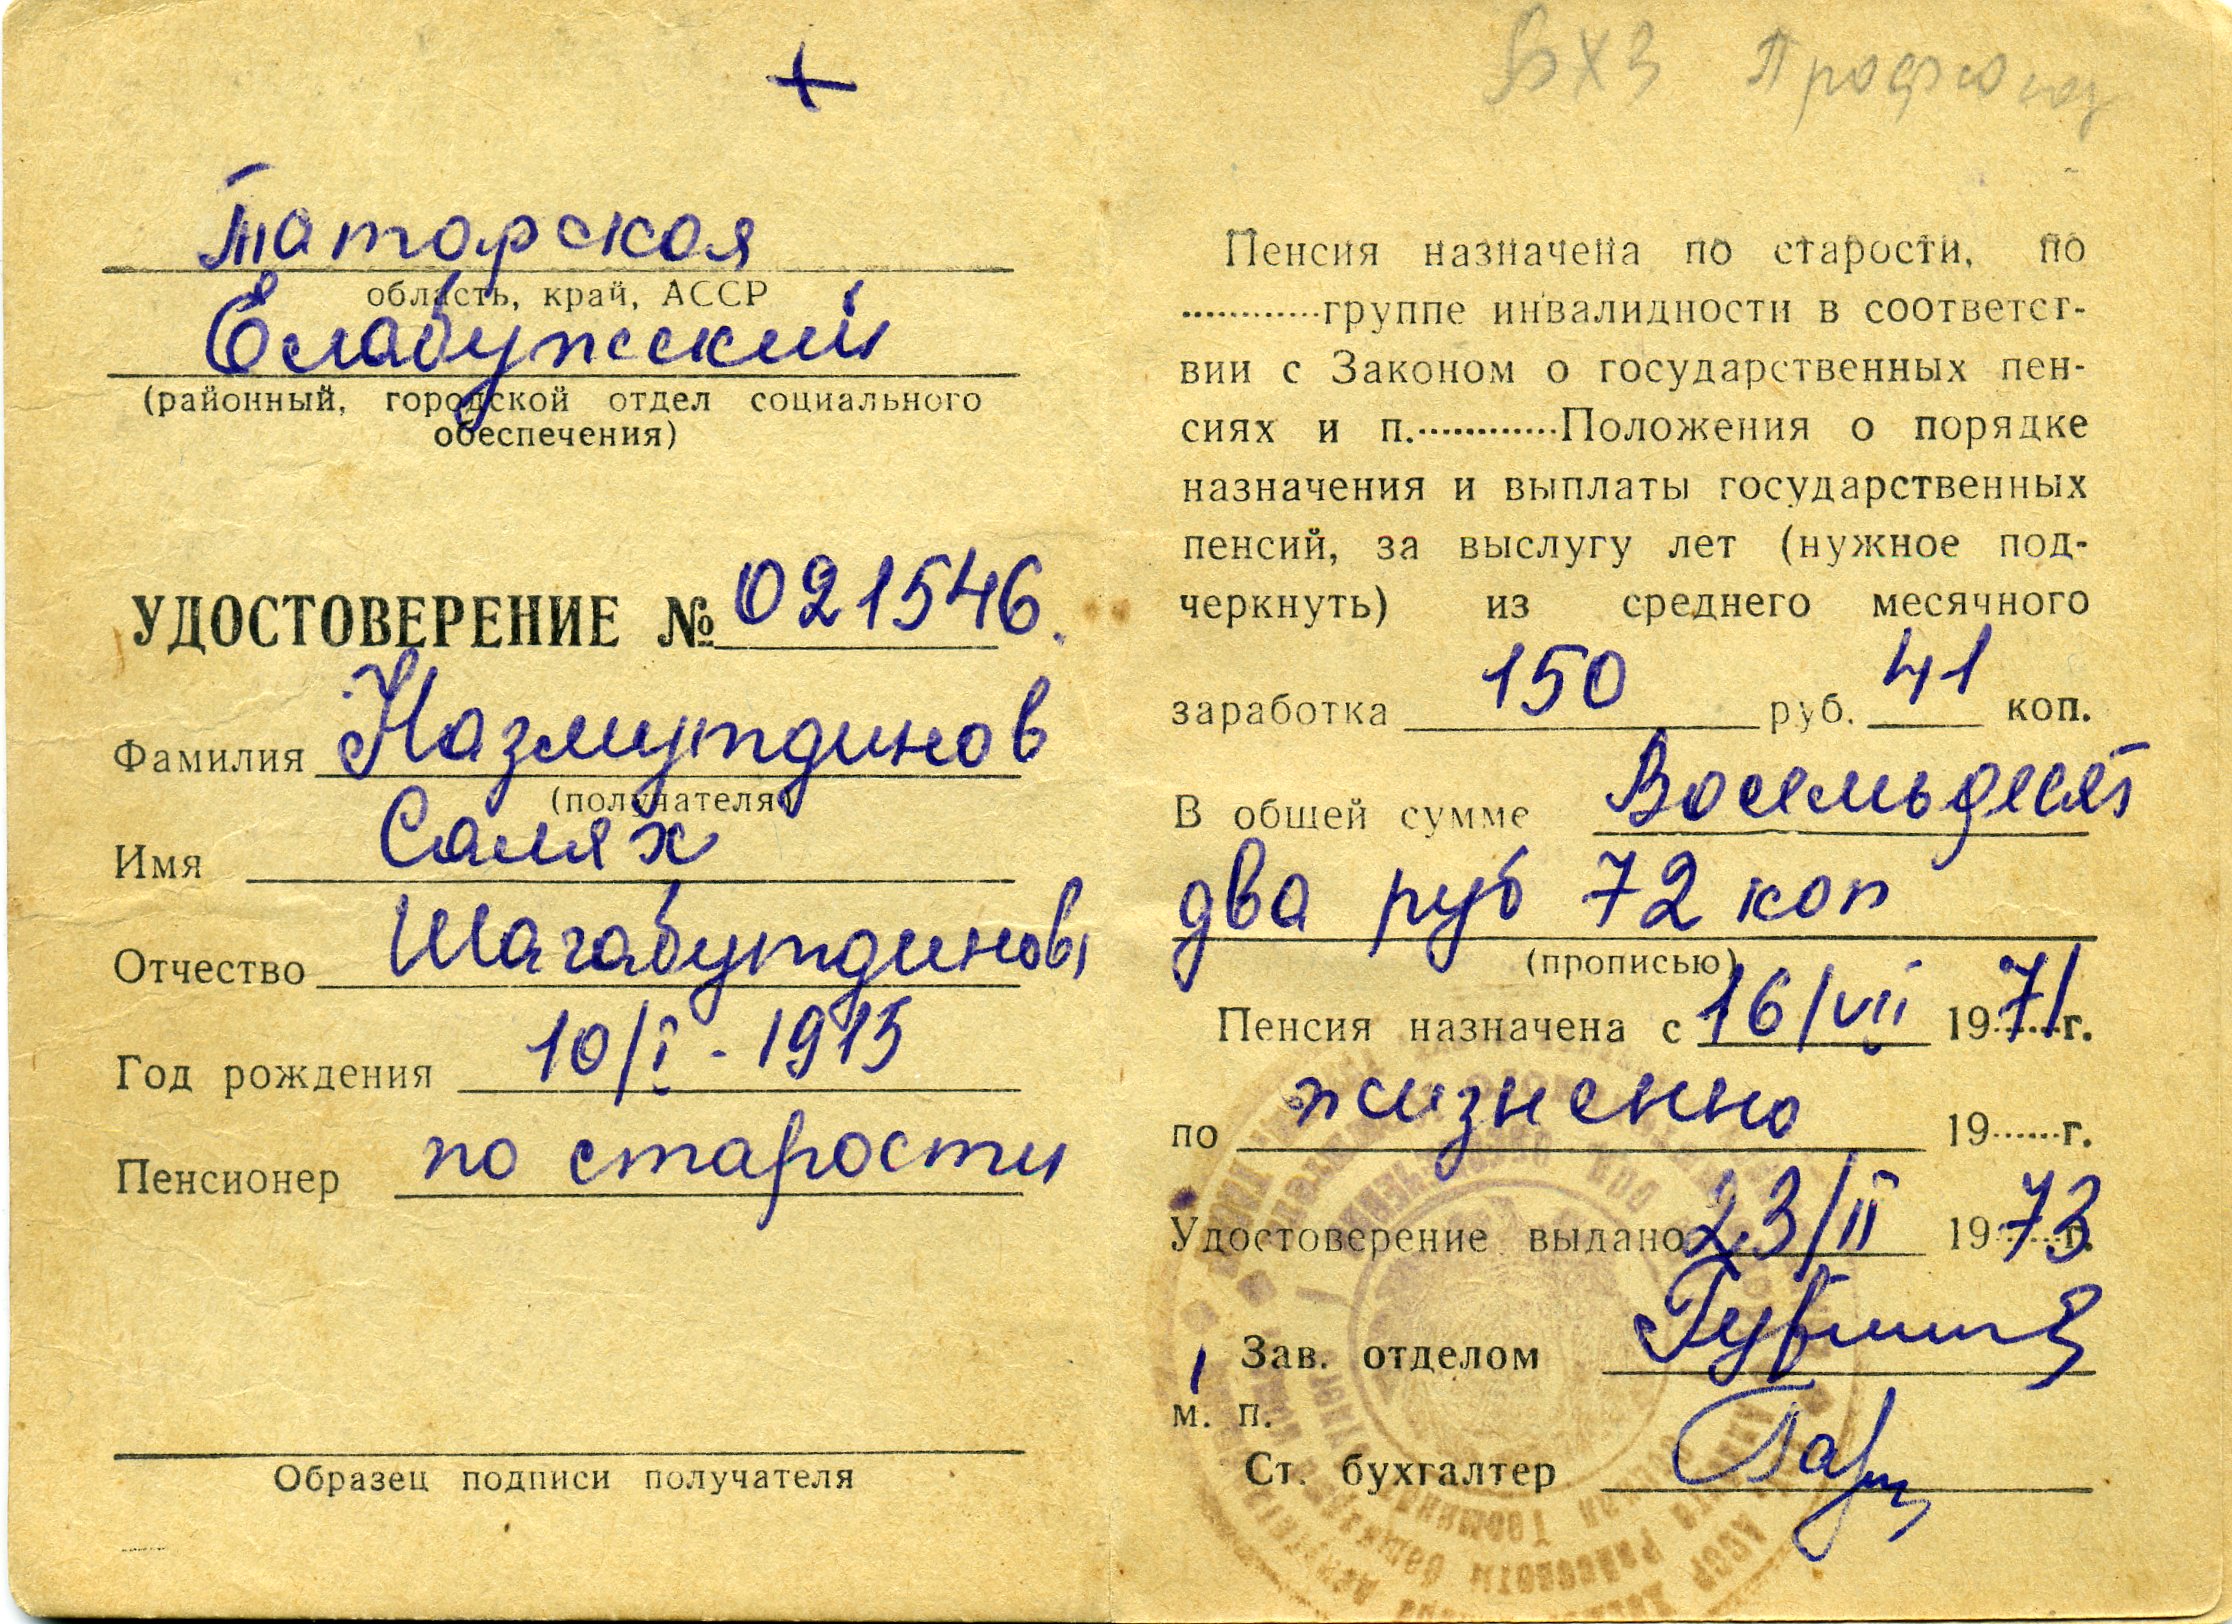 Татарская
область, край, АССР
Елабужский
(районный, городской отдел социального
обеспечения)
УДОСТОВЕРЕНИЕ № 021546.
Фамилия Назмутдинов
(получателя)
Имя Салях
Отчество Шагабутдинов
Год рождения 10/I - 1915
Пенсионер по старости
Образец подписи получателя
БХЗ Профсоюз
Пенсия назначена по старости, по
............группе инвалидности в соответст-
вии с Законом о государственных пен-
сиях и п.............Положения о порядке
назначения и выплаты государственных
пенсий, за выслугу лет (нужное под-
черкнуть) из среднего месячного
заработка 150 руб. 41 коп.
В общей сумме Восемьдесят
два руб 72 коп
(прописью)
Пенсия назначена с 16/VII 1971 г.
по жизненно 19......г.
Удостоверение выдано 23/II 1973 г.
Зав. отделом
м. п.
Ст. бухгалтер